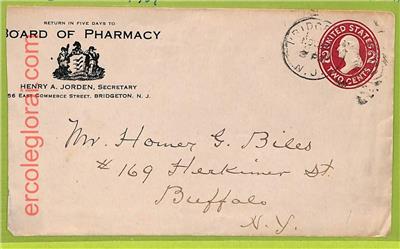 RETURN IN FIVE DAYS TO
BOARD OF PHARMACY
HENRY A. JORDEN, SECRETARY
56 EAST COMMERCE STREET, BRIDGETON, N. J.
N.J.
UNITED STATES
2 2
TWO CENTS
Mr. Homer G. Biles
# 169 Herkimer St.
Buffalo
N.Y.
ercolegloria.com